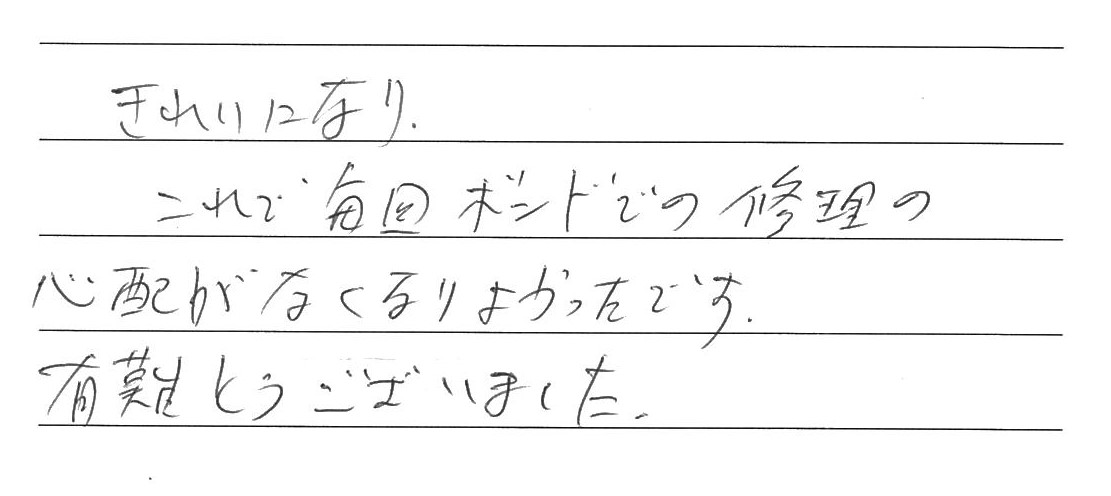 きれいになり.
これで毎回ボンドでの修理の
心配がなくなりよかったです.
有難とうございました.